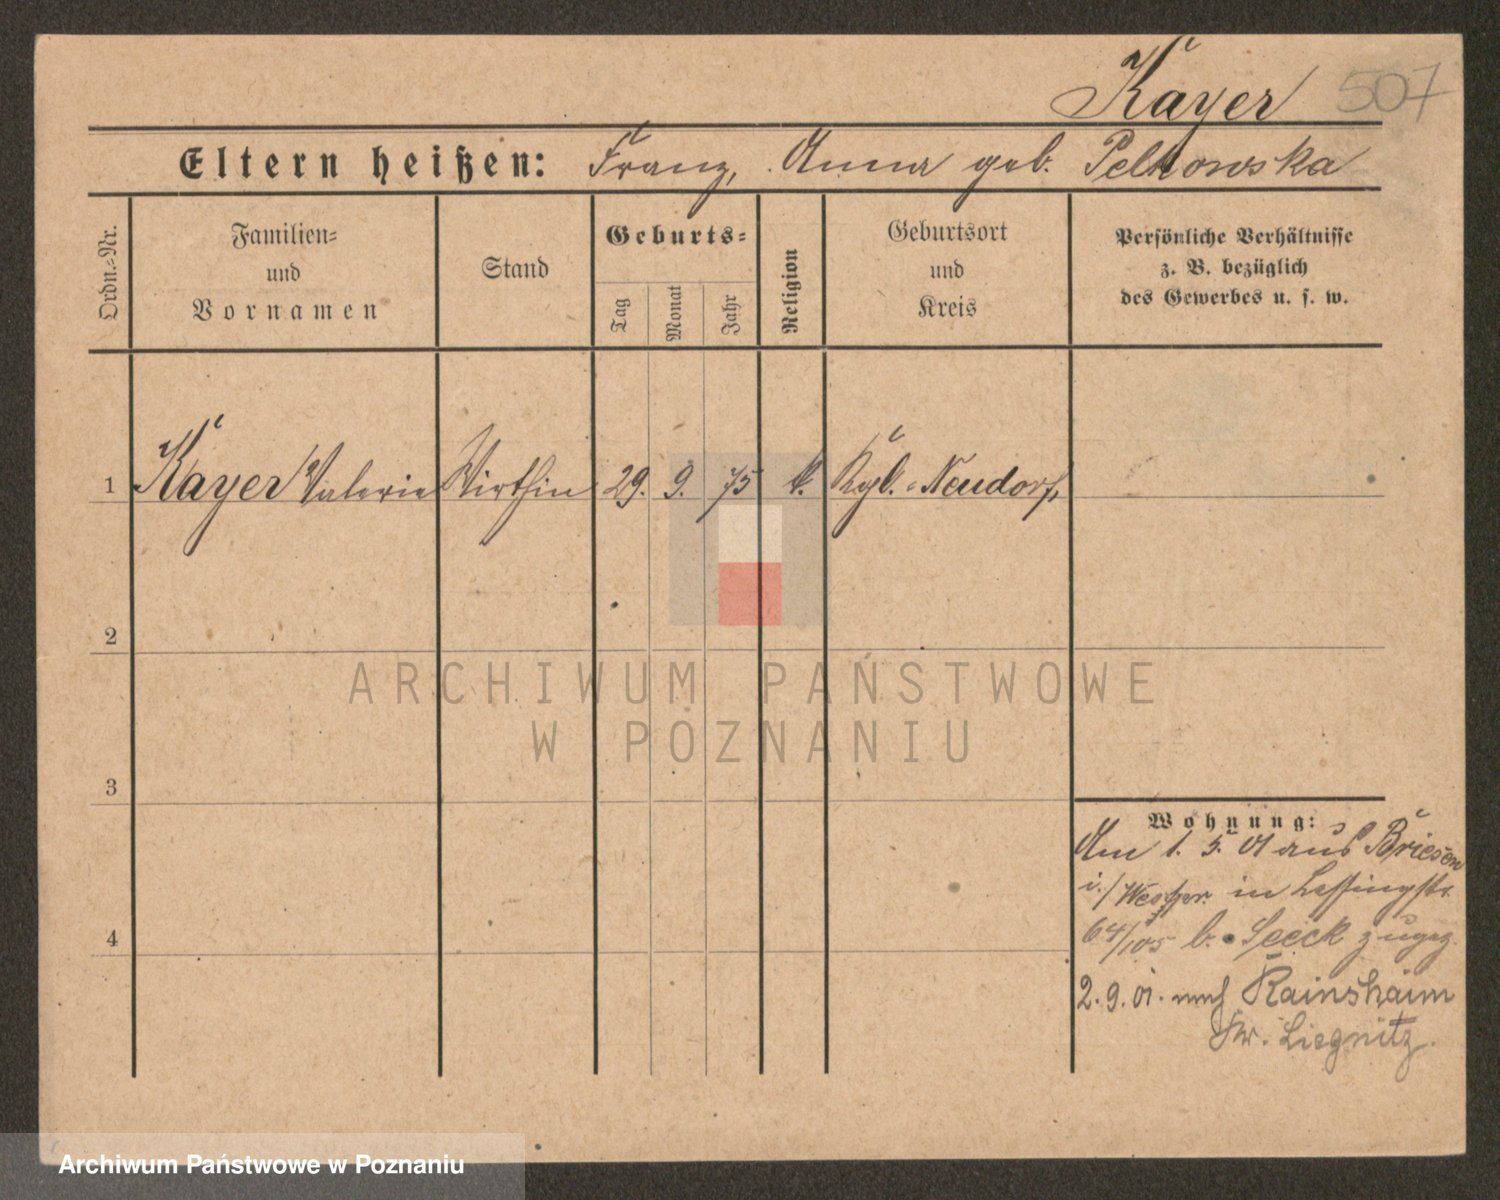 Kayer 507
Eltern heißen: Franz, Anna geb. Pelkowska
Ordn.-Nr.
Familien-
und
Vornamen
Stand
Geburts-
Tag
Monat
Jahr
Religion
Geburtsort
und
Kreis
Persönliche Verhältnisse
z. B. bezüglich
des Gewerbes u. s. w.
1 Kayer Valerie Wirthin 29. 9. 75 k. Kgl. Neudorf,
2
3
4
Wohnung:
Am 1. 5. 01 aus Briesen
i./Westpr. in Lessingstr.
64/105 b. Seeck zugez.
2. 9. 01. nach Rainshaim
Kr. Liegnitz.
ARCHIWUM PAŃSTWOWE
W POZNANIU
Archiwum Państwowe w Poznaniu